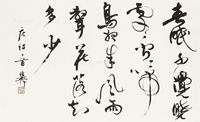 春眠不覺曉
處處聞啼
鳥夜來風雨
聲花落知
多少